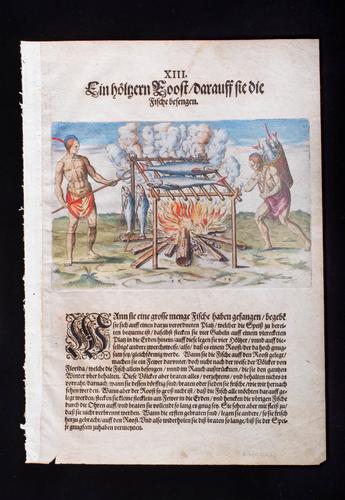 XIII.
Ein höltzern Roost / darauff sie die
Fische besengen.
WAnn sie eine grosse menge Fische haben gefangen / begebẽ
sie sich auff einen darzu verordneten Platz / welcher die Speiß zu berei-
ten bequem ist / daselbst stecken sie vier Gabeln auff einem viereckten
Platz in die Erden hinein / auff diese legen sie vier Höltzer / vnnd auff die-
selbige andere zwerchweise / also / daß es einem Roost / der da hoch gnug-
sam sey / gleichförmig werde. Wann sie die Fische auff den Roost gelegt /
machen sie ein Fewer darunter / doch nicht nach der weise des Völcker von
Florida / welche die Fisch allein besengen / vnnd im Rauch aufftrücknen / die sie den gantzen
Winter vber behalten. Diese Völcker aber braten alles / verzehrens / vnd behalten nichts in
vorraht / darnach / wann sie dessen bedürfftig sind / braten oder sieden sie frische / wie wir hernach
sehen werden. Wann aber der Roost so groß nicht ist / daß die Fisch alle möchten darauff ge-
legt werden / stecken sie kleine stecklein am Fewer in die Erden / vnd hencken die vbrigen Fische
durch die Ohren auff / vnd braten sie vollend so lang es gnug sey. Sie sehen aber mit fleiß zu /
daß sie nicht verbrennt werden. Wann die ersten gebraten sind / legen sie andere / so sie frisch
herzu gebracht / auff den Roost. Vnd also widerholen sie diß braten so lang / biß sie der Spei-
se gnugsam zuhaben vermeynen.